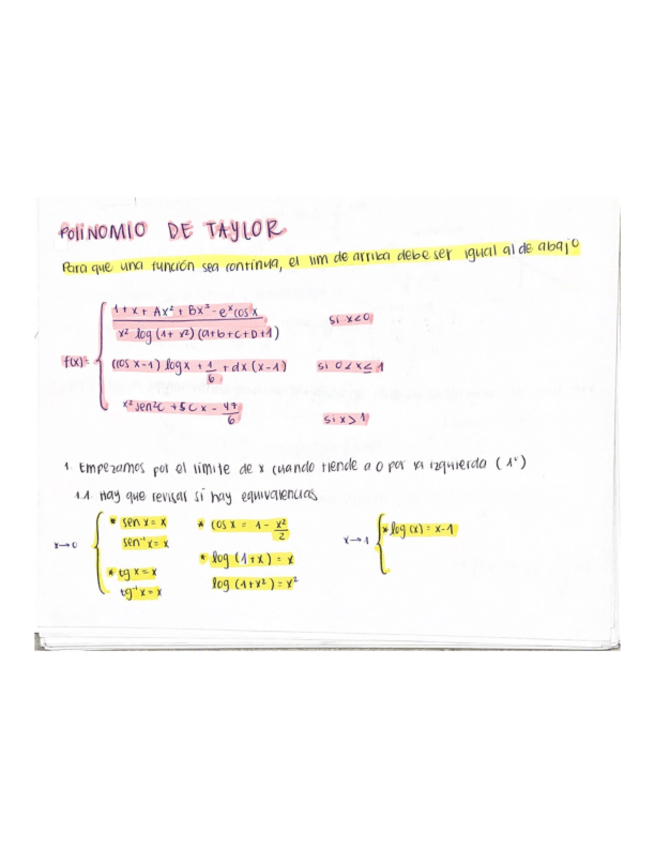 POLINOMIO DE TAYLOR
Para que una función sea continua, el lim de arriba debe ser igual al de abajo
1 + x + Ax² + Bx³ - eˣ cos x
x² log (1 + x²) (a+b+c+D+1)
si x<0
f(x)=
(cos x-1) log x + 1/6 + dx (x-1)
si 0<x≤1
x² sen²c + 5cx - 47/6
si x>1
1. Empezamos por el límite de x cuando tiende a 0 por la izquierda (1º)
1.1. Hay que revisar si hay equivalencias
x→0
* sen x = x
sen⁻¹ x = x
* tg x = x
tg⁻¹ x = x
* cos x = 1 - x²/2
* log (1+x) = x
log (1+x²) = x²
x→1
* log (x) = x-1